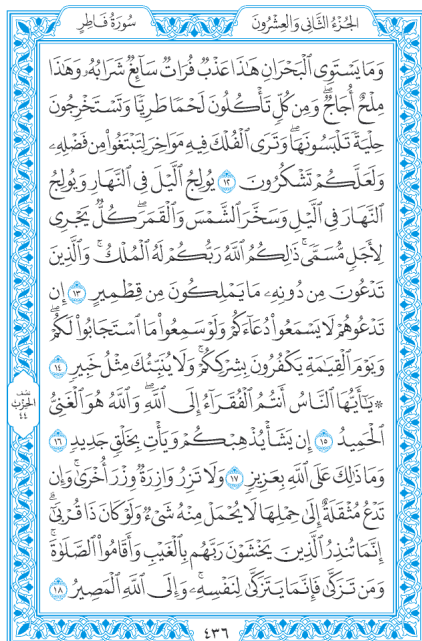 الجزء الثاني والعشرون
سورة فاطر
وَمَا يَسْتَوِى ٱلْبَحْرَانِ هَٰذَا عَذْبٌ فُرَاتٌ سَآئِغٌ شَرَابُهُۥ وَهَٰذَا
مِلْحٌ أُجَاجٌ ۖ وَمِن كُلٍّ تَأْكُلُونَ لَحْمًا طَرِيًّا وَتَسْتَخْرِجُونَ
حِلْيَةً تَلْبَسُونَهَا ۖ وَتَرَى ٱلْفُلْكَ فِيهِ مَوَاخِرَ لِتَبْتَغُوا۟ مِن فَضْلِهِۦ
وَلَعَلَّكُمْ تَشْكُرُونَ ١٢ يُولِجُ ٱلَّيْلَ فِى ٱلنَّهَارِ وَيُولِجُ
ٱلنَّهَارَ فِى ٱلَّيْلِ وَسَخَّرَ ٱلشَّمْسَ وَٱلْقَمَرَ ۖ كُلٌّ يَجْرِى
لِأَجَلٍ مُّسَمًّى ۚ ذَٰلِكُمُ ٱللَّهُ رَبُّكُمْ لَهُ ٱلْمُلْكُ ۚ وَٱلَّذِينَ
تَدْعُونَ مِن دُونِهِۦ مَا يَمْلِكُونَ مِن قِطْمِيرٍ ١٣ إِن
تَدْعُوهُمْ لَا يَسْمَعُوا۟ دُعَآءَكُمْ وَلَوْ سَمِعُوا۟ مَا ٱسْتَجَابُوا۟ لَكُمْ ۖ
وَيَوْمَ ٱلْقِيَٰمَةِ يَكْفُرُونَ بِشِرْكِكُمْ ۚ وَلَا يُنَبِّئُكَ مِثْلُ خَبِيرٍ ١٤
۞ يَٰٓأَيُّهَا ٱلنَّاسُ أَنتُمُ ٱلْفُقَرَآءُ إِلَى ٱللَّهِ ۖ وَٱللَّهُ هُوَ ٱلْغَنِىُّ
ٱلْحَمِيدُ ١٥ إِن يَشَأْ يُذْهِبْكُمْ وَيَأْتِ بِخَلْقٍ جَدِيدٍ ١٦
وَمَا ذَٰلِكَ عَلَى ٱللَّهِ بِعَزِيزٍ ١٧ وَلَا تَزِرُ وَازِرَةٌ وِزْرَ أُخْرَىٰ ۚ وَإِن
تَدْعُ مُثْقَلَةٌ إِلَىٰ حِمْلِهَا لَا يُحْمَلْ مِنْهُ شَىْءٌ وَلَوْ كَانَ ذَا قُرْبَىٰٓ ۗ
إِنَّمَا تُنذِرُ ٱلَّذِينَ يَخْشَوْنَ رَبَّهُم بِٱلْغَيْبِ وَأَقَامُوا۟ ٱلصَّلَوٰةَ ۚ
وَمَن تَزَكَّىٰ فَإِنَّمَا يَتَزَكَّىٰ لِنَفْسِهِۦ ۚ وَإِلَى ٱللَّهِ ٱلْمَصِيرُ ١٨
نصف
الحزب
٤٤
٤٣٦